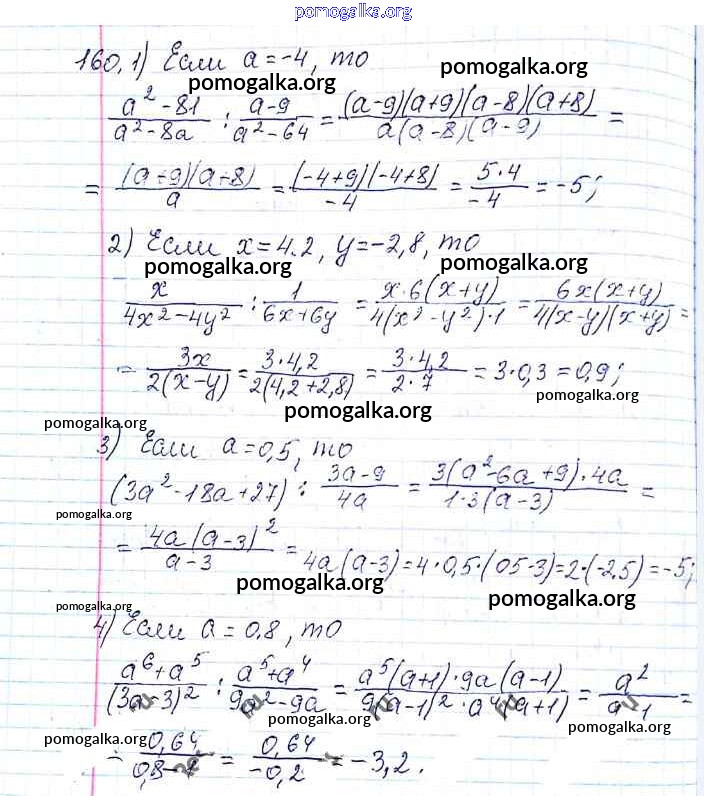 pomogalka.org
160.1) Если a=-4, то
pomogalka.org pomogalka.org
(a²-81)/(a²-8a) : (a-9)/(a²-64) = ((a-9)(a+9)(a-8)(a+8))/(a(a-8)(a-9)) =
= ((a+9)(a+8))/a = ((-4+9)(-4+8))/(-4) = (5·4)/(-4) = -5;
2) Если x=4.2, y=-2,8, то
pomogalka.org pomogalka.org
x/(4x²-4y²) : 1/(6x+6y) = (x·6(x+y))/(4(x²-y²)·1) = (6x(x+y))/(4(x-y)(x+y)) =
= 3x/(2(x-y)) = (3·4,2)/(2(4,2+2,8)) = (3·4,2)/(2·7) = 3·0,3 = 0,9;
pomogalka.org
pomogalka.org
pomogalka.org
3) Если a=0,5, то
(3a²-18a+27) : (3a-9)/(4a) = (3(a²-6a+9)·4a)/(1·3(a-3)) =
pomogalka.org
= (4a(a-3)²)/(a-3) = 4a(a-3)=4·0,5·(05-3)=2·(-2.5)=-5;
pomogalka.org pomogalka.org
pomogalka.org
4) Если a=0.8, то
(a⁶+a⁵)/((3a-3)²) : (a⁵+a⁴)/(9a²-9a) = (a⁵(a+1)·9a(a-1))/(9(a-1)²·a⁴(a+1)) = a²/(a-1) =
pomogalka.org
pomogalka.org pomogalka.org
= 0,64/(0,8-1) = 0,64/(-0,2) = -3,2.